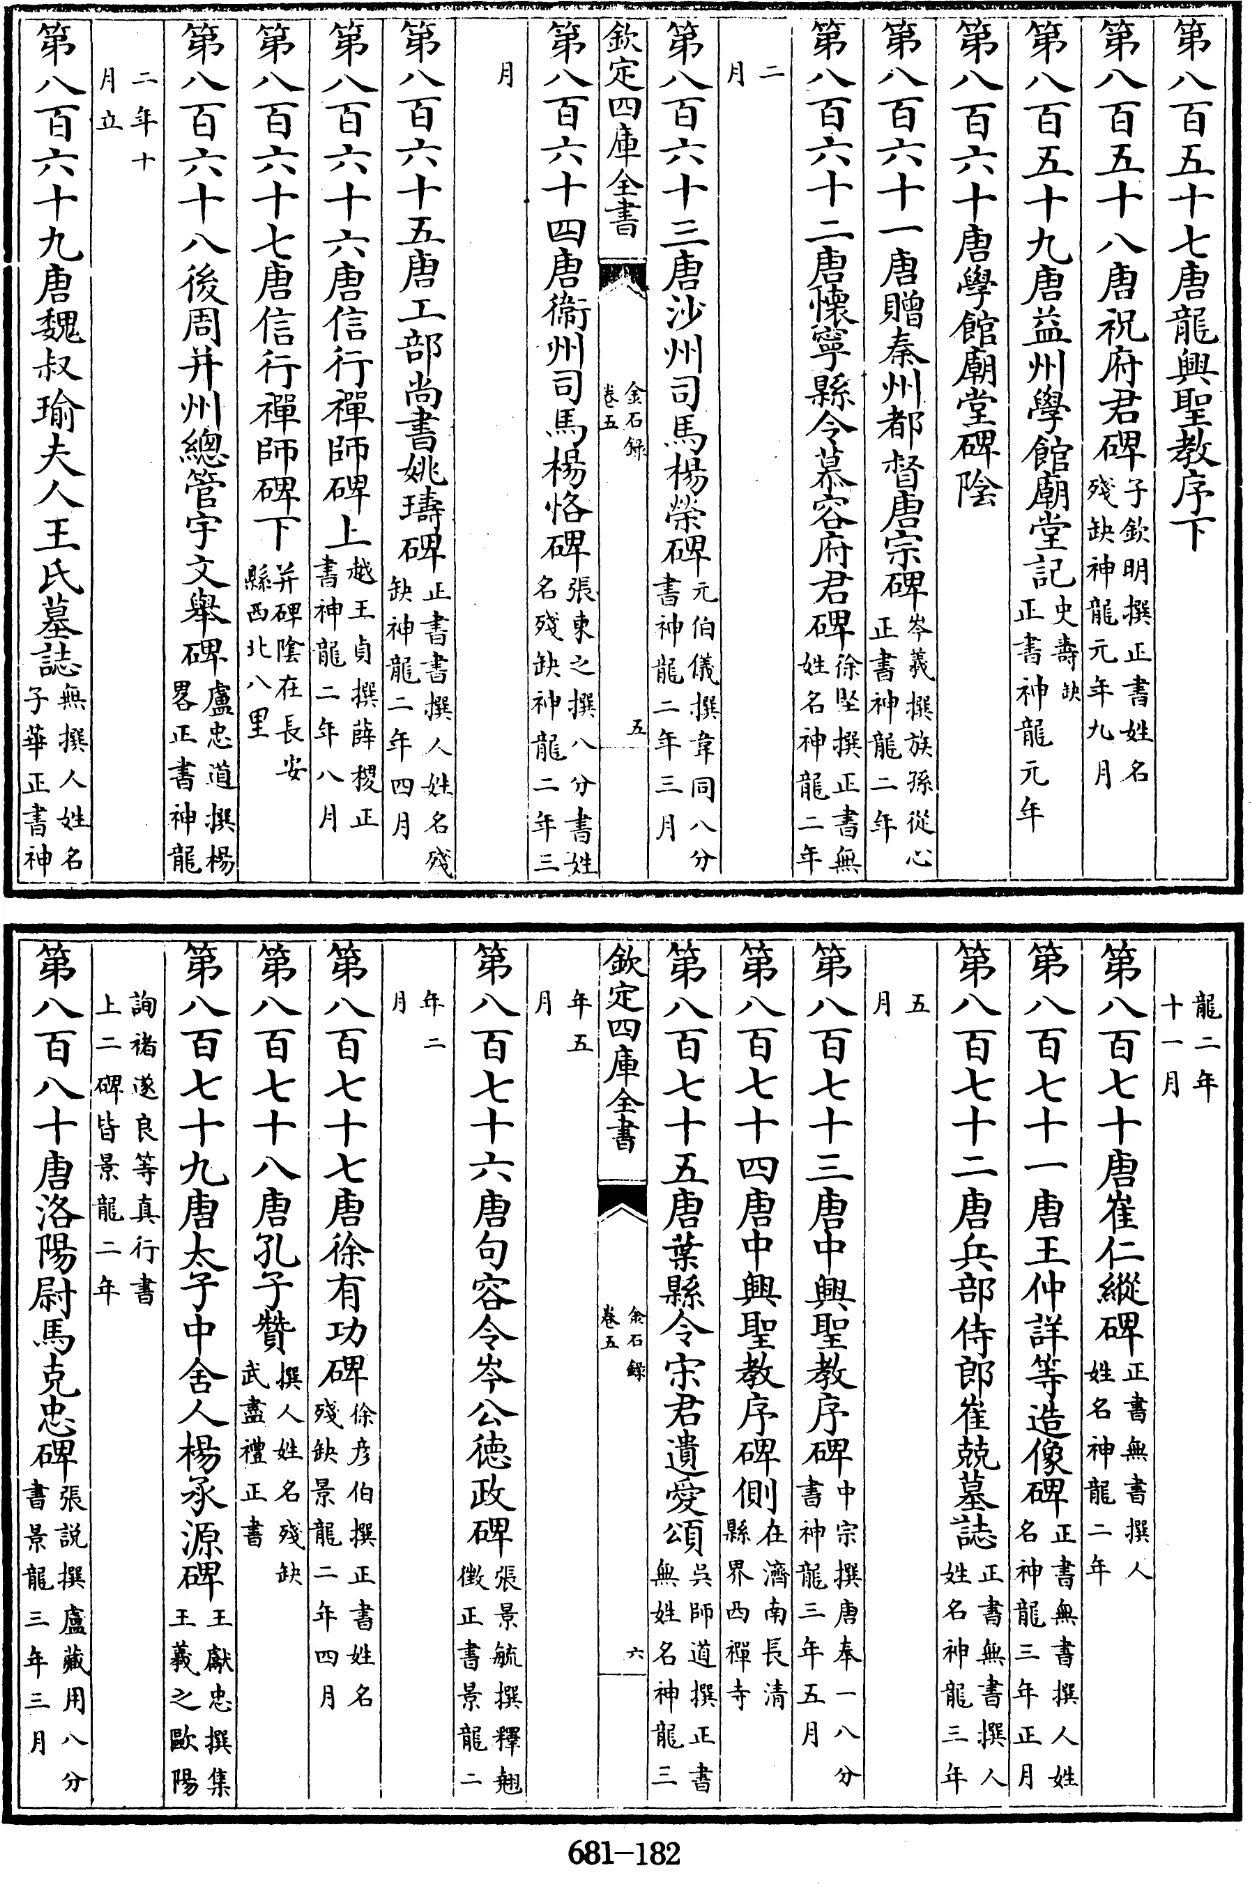 第八百五十七唐龍興聖教序下
第八百五十八唐祝府君碑子欽明撰正書姓名殘缺神龍元年九月
第八百五十九唐益州學館廟堂記史壽缺正書神龍元年
第八百六十唐學館廟堂碑陰
第八百六十一唐贈秦州都督唐宗碑岑羲撰族孫從心正書神龍二年
第八百六十二唐懷寧縣令慕容府君碑徐堅撰正書無姓名神龍二年
二月
第八百六十三唐沙州司馬楊榮碑元伯儀撰韋同八分書神龍二年三月
欽定四庫全書
金石録卷五
五
第八百六十四唐衛州司馬楊恪碑張柬之撰八分書姓名殘缺神龍二年三
月
第八百六十五唐工部尚書姚璹碑正書書撰人姓名殘缺神龍二年四月
第八百六十六唐信行禪師碑上越王貞撰薛稷正書神龍二年八月
第八百六十七唐信行禪師碑下并碑陰在長安縣西北八里
第八百六十八後周并州總管宇文舉碑盧忠道撰楊畧正書神龍
二年十月立
第八百六十九唐魏叔瑜夫人王氏墓誌無撰人姓名子華正書神
龍二年十一月
第八百七十唐崔仁縱碑正書無書撰人姓名神龍二年
第八百七十一唐王仲詳等造像碑正書無書撰人姓名神龍三年正月
第八百七十二唐兵部侍郎崔兢墓誌正書無書撰人姓名神龍三年
五月
第八百七十三唐中興聖教序碑中宗撰唐奉一八分書神龍三年五月
第八百七十四唐中興聖教序碑側在濟南長清縣界西禪寺
第八百七十五唐葉縣令宋君遺愛頌吳師道撰正書無姓名神龍三
欽定四庫全書
金石録卷五
六
年五月
第八百七十六唐句容令岑公德政碑張景毓撰釋翹徴正書景龍二
年二月
第八百七十七唐徐有功碑徐彦伯撰正書姓名殘缺景龍二年四月
第八百七十八唐孔子贊撰人姓名殘缺武盡禮正書
第八百七十九唐太子中舍人楊承源碑王獻忠撰集王羲之歐陽
詢褚遂良等真行書上二碑皆景龍二年
第八百八十唐洛陽尉馬克忠碑張説撰盧藏用八分書景龍三年三月
681-182